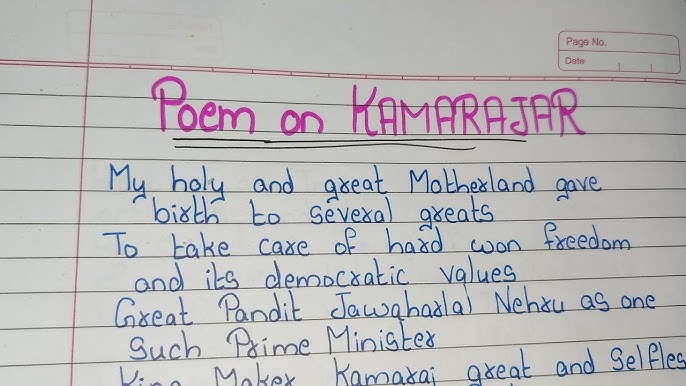 Page No.
Date
Poem on KAMARAJAR
My holy and great Motherland gave
birth to several greats
To take care of hard won freedom
and its democratic values
Great Pandit Jawaharlal Nehru as one
Such Prime Minister
King Maker Kamaraj great and Selfles